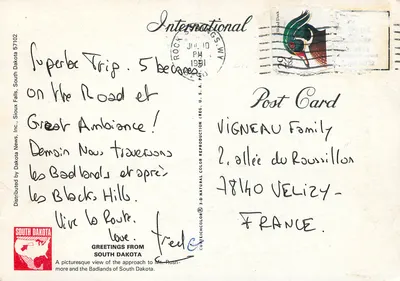 International
Superbe Trip. 5 bécanes
on the Road et
Great Ambiance!
Demain Nous traversons
les Badlands et après
les Blacks Hills.
Vive la Route.
love. Fred
SOUTH DAKOTA
GREETINGS FROM
SOUTH DAKOTA
A picturesque view of the approach to Mt. Rush-
more and the Badlands of South Dakota.
Distributed by Dakota News, Inc., Sioux Falls, South Dakota 57102
ROCK SPRINGS, WY
JUL 10
PM
1991
Post Card
VIGNEAU Family
2, allée du Roussillon
78140 VELIZY-
FRANCE.